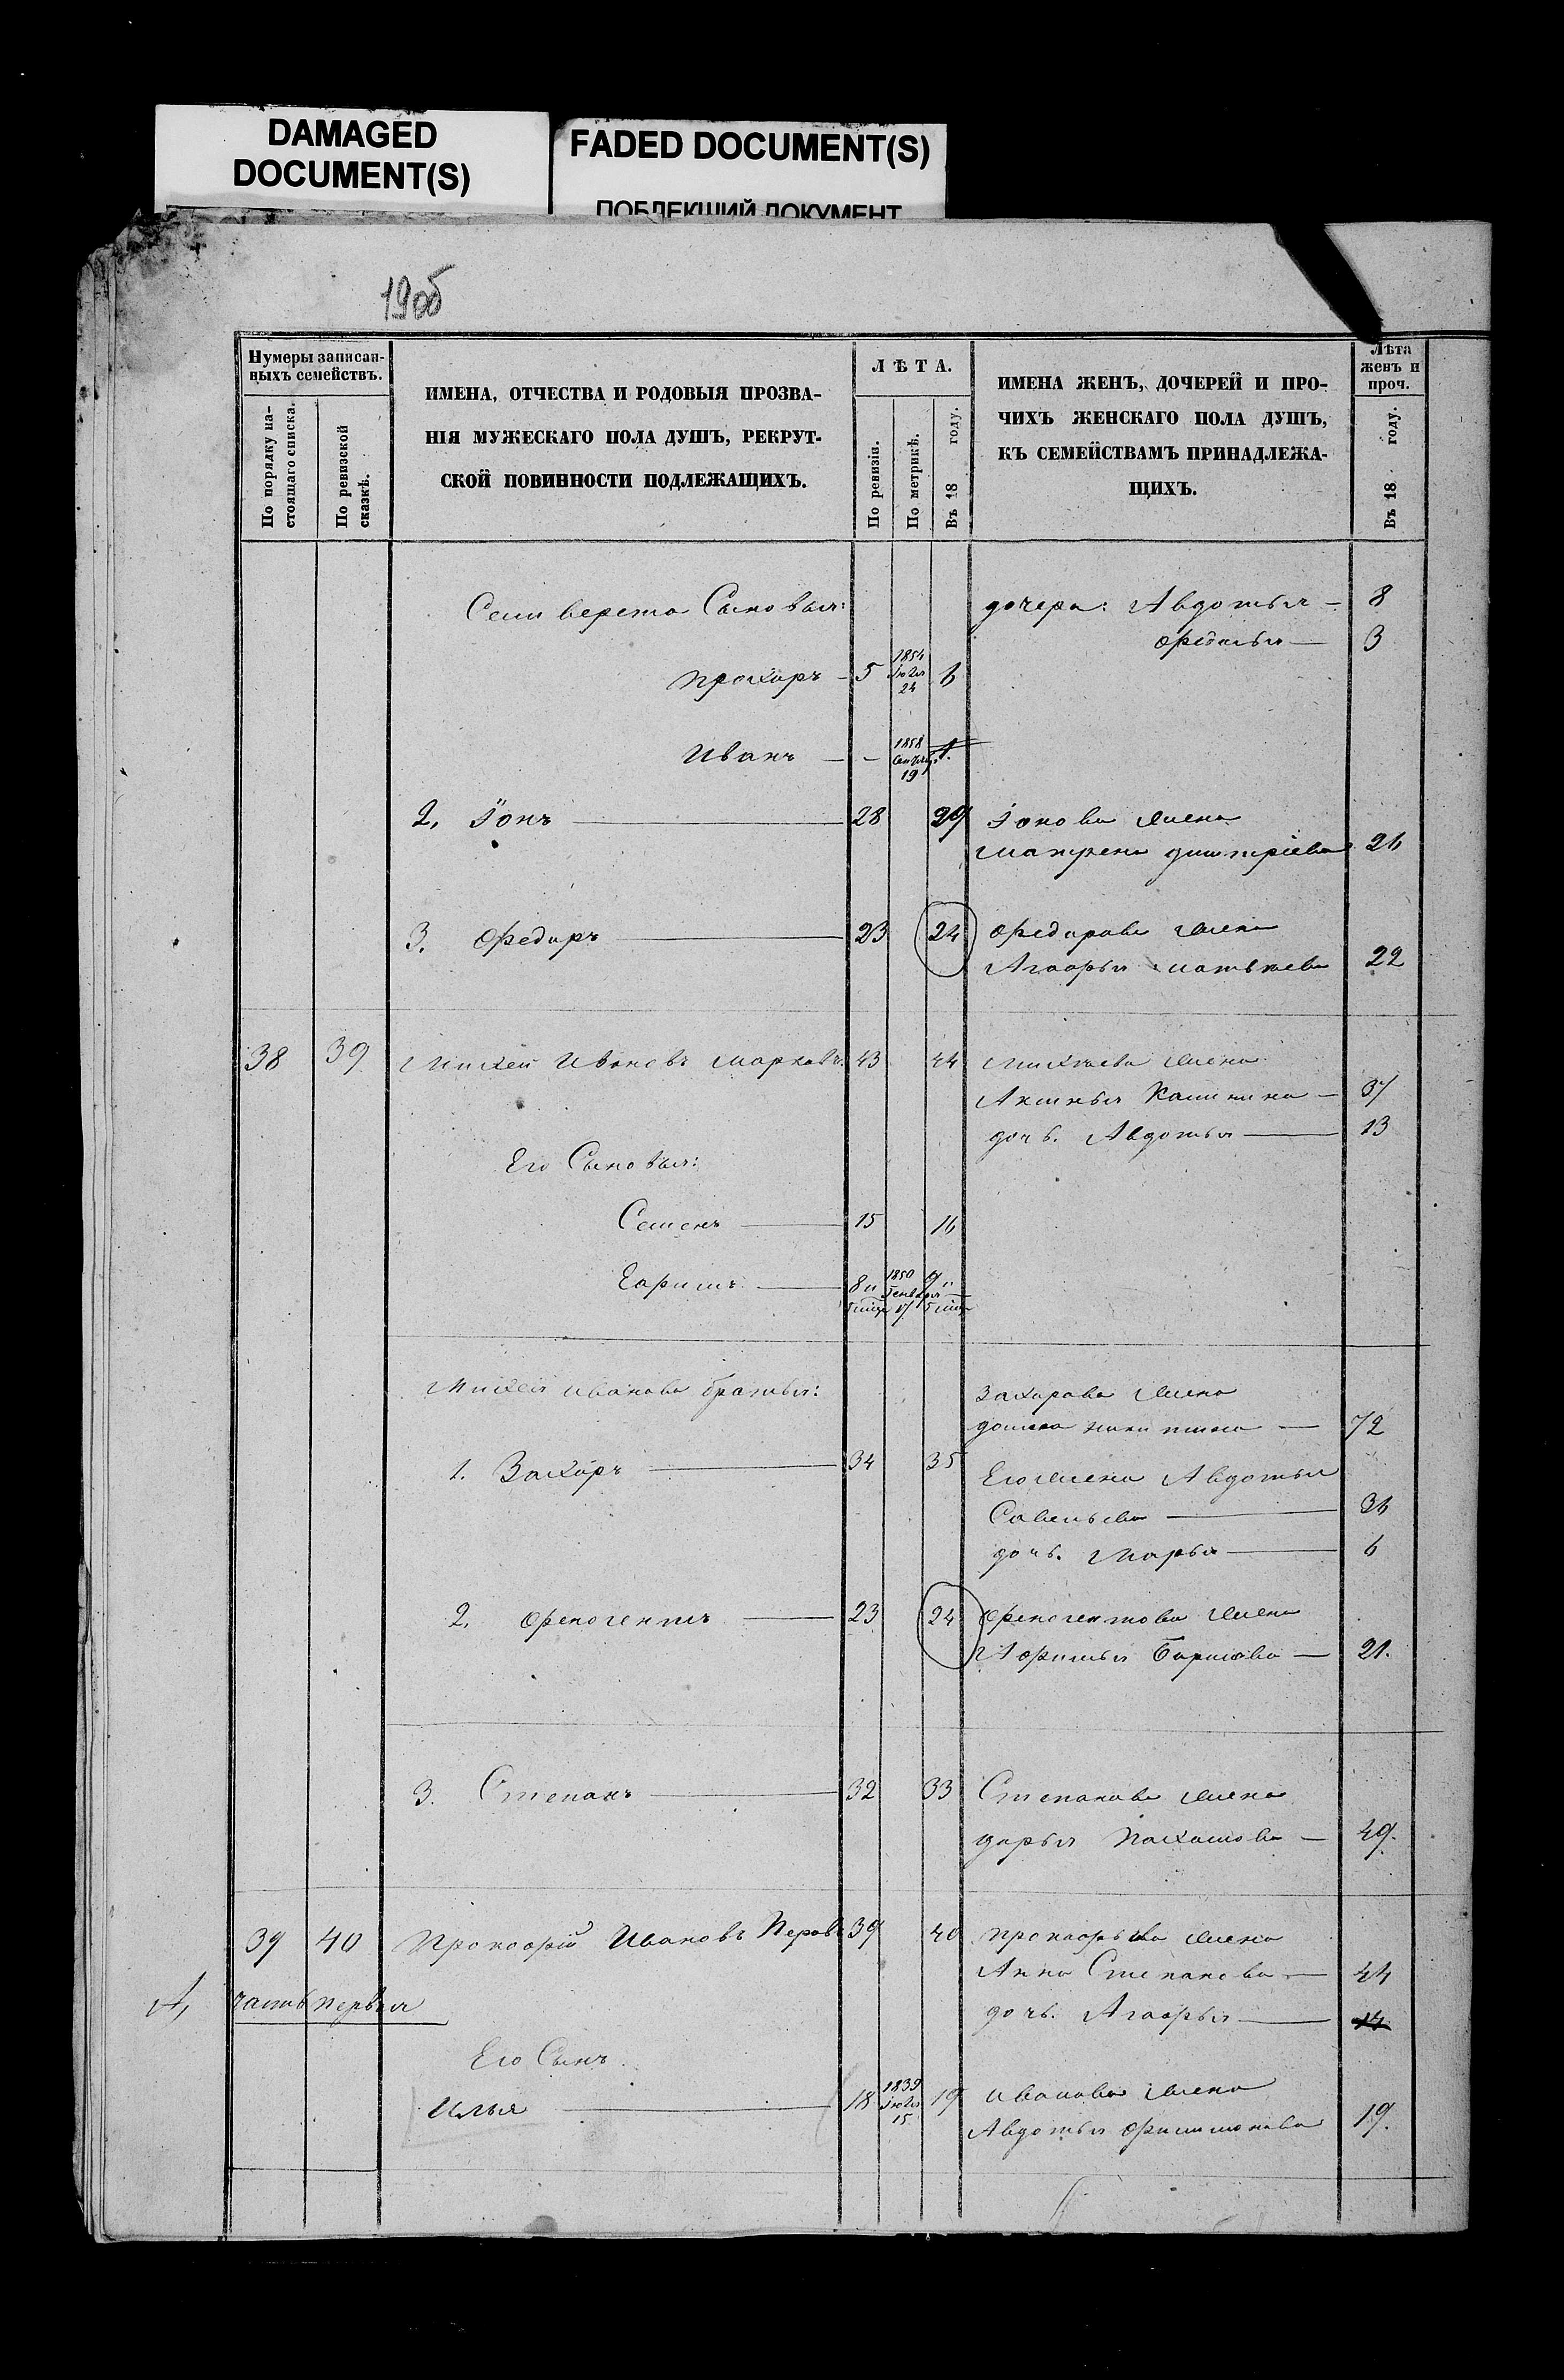 DAMAGED
DOCUMENT(S)
FADED DOCUMENT(S)
ПОБЛЕКШИЙ ДОКУМЕНТ
19об
Нумеры записан-
ныхъ семействъ.
По порядку на-
стоящаго списка.
По ревизской
сказкѣ.
ИМЕНА, ОТЧЕСТВА И РОДОВЫЯ ПРОЗВА-
НІЯ МУЖЕСКАГО ПОЛА ДУШЪ, РЕКРУТ-
СКОЙ ПОВИННОСТИ ПОДЛЕЖАЩИХЪ.
ЛѢТА.
По ревизіи.
По метрикѣ.
Въ 18 году.
ИМЕНА ЖЕНЪ, ДОЧЕРЕЙ И ПРО-
ЧИХЪ ЖЕНСКАГО ПОЛА ДУШЪ,
КЪ СЕМЕЙСТВАМЪ ПРИНАДЛЕЖА-
ЩИХЪ.
Лѣта
женъ и
проч.
Въ 18 году.
Селиверста Сыновья: дочери: Авдотья — 8
3
Прохоръ — 5 1854 Іюля 24 6
Иванъ — — 1858 19 1.
2. Іонъ — 28 29 Іонова жена
Матрена Дмитріева 26
3. Федоръ — 23 24 Федорова жена
Агафья Матвѣева 22
38 39 Михей Ивановъ Марковъ. 43 44 Михѣева жена
Аксинья Калинина — 37
дочь. Авдотья — 13
Его Сыновья:
Семенъ — 15 16
Ефимъ — 8 1850 Генваря 9
Михея Иванова братья: Захарова жена
72
1. Захаръ — 34 35 Его жена Авдотья
Савельева — 36
дочь. Марья — 6
2. Феногентъ — 23 24 Феногентова жена
Афимья Борисова — 21.
3. Степанъ — 32 33 Степанова жена
Дарья Пахомова — 49.
39 40 Прокофій Ивановъ Перовъ 39 40 Прокофьева жена
Анна Степанова — 44
часть первая дочь. Агафья — 14
Его Сынъ.
Илья — 18 1839 Іюля 15 19 Иванова жена
Авдотья Филимонова 19.